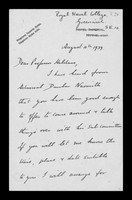 Royal Naval College,
Greenwich
S.E. 10
August 4th 1939
Dear Professor Haldane,
I have heard from
Admiral Dunbar Nasmith
that you have been good enough
to offer to come around & talk
things over with his Sub-committee
If you will let me know the
kind of
date suitable
to you we